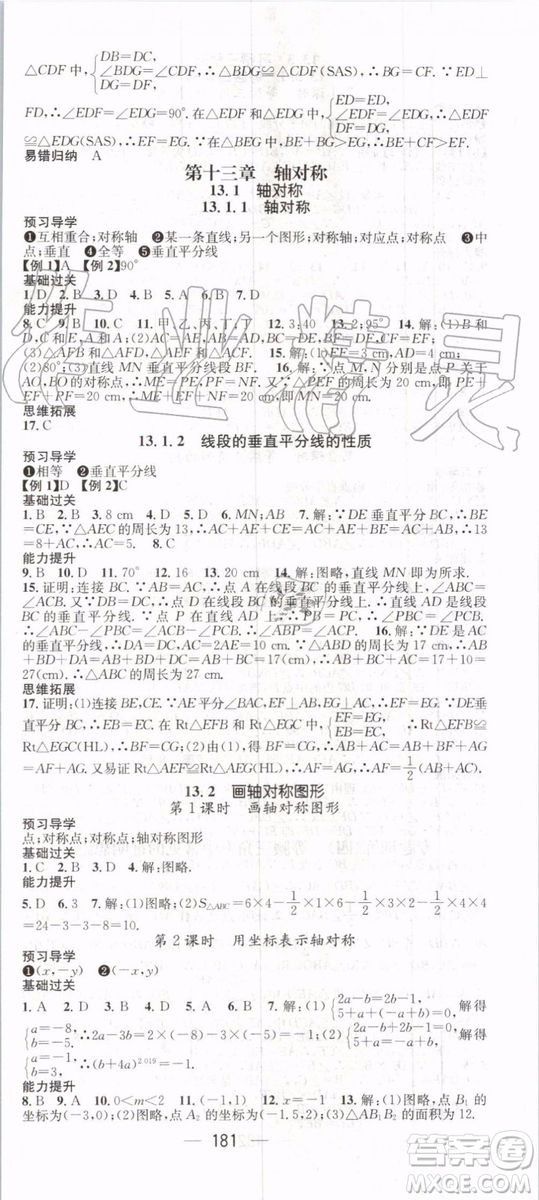 △CDF 中,{DB=DC, ∠BDG=∠CDF, DG=DF, ∴△BDG≌△CDF(SAS),∴BG=CF. ∵ED⊥
FD,∴∠EDF=∠EDG=90°. 在△EDF 和△EDG 中,{ED=ED, ∠EDF=∠EDG, DF=DG, ∴△EDF
≌△EDG(SAS),∴EF=EG. ∵在△BEG 中,BE+BG>EG,∴BE+CF>EF.
易错归纳 A
第十三章 轴对称
13.1 轴对称
13.1.1 轴对称
预习导学
❶互相重合;对称轴 ❷某一条直线;另一个图形;对称轴;对应点;对称点 ❸中
点;垂直 ❹全等 ❺垂直平分线
【例1】A 【例2】90°
基础过关
1. D 2. B 3. D 4. B 5. A 6. B 7. D
能力提升
8. C 9. B 10. C 11. 甲、乙、丙、丁 12. 3:40 13. 95° 14. 解:(1)B 和
D,C 和 E,A 和 A;
(2)80°;(3)直线 MN 垂直平分线段 BF. 16. 解:∵点 M、N 分别是点 P 关于
AO,BO 的对称点,∴ME=PE,NF=PF,∴MN=ME+EF+FN=PE+EF
+PF=△PEF 的周长. ∵MN=20 cm,∴△PEF 的周长=20 cm.
思维拓展
17. C
13.1.2 线段的垂直平分线的性质
预习导学
❶相等 ❷垂直平分线
【例1】D 【例2】C
基础过关
1. B 2. B 3. 8 cm 4. D 5. D 6. MN;AB 7. 解:∵DE 垂直平分 BC,∴BE
=CE,∵△AEC 的周长为 13,∴AC+AE+CE=AC+AE+BE=AC+AB,∴13
=8+AC,∴AC=5. 8. C
能力提升
9. B 10. D 11. 70° 12. 16 13. 20 cm 14. 解:图略,直线 MN 即为所求.
15. 证明:连接 BC. ∵BD=DC,∴点 D 在线段 BC 的垂直平分线上,∵∠ABC=
∠ACB,
BC 的垂直平分线. ∵点 P 在直线 AD 上,∴PB=PC,
∴∠ABC-∠PBC=∠ACB-∠PCB,∴∠ABP=∠ACP. 16. 解:∵DE 垂直平
分 BC,∴BD=DC,
BD+AD=17(cm),∴△ABD 的周长=AB+BD+AD=10+17=27(cm).
思维拓展
17. 证明:(1)连接 BE,CE. ∵AE 平分∠BAC,EF⊥AB,EG⊥AC,∴EF=EG. ∵DE
垂直平分 BC,∴EB=EC. 在 Rt△EFB 和 Rt△EGC 中,{EF=EG, EB=EC, ∴Rt△EFB≌
Rt△EGC(HL),∴BF=CG;(2)∵BF=CG,∴AB+AC=AF+BF+AG-CG=
AF+AG. 又易证 Rt△AEF≌Rt△AEG(HL),∴AF=AG,∴AF=1/2(AB+AC).
13.2 画轴对称图形
第1课时 画轴对称图形
预习导学
点;对称点;对称点;轴对称图形
基础过关
1. C 2. B 3. B 4. 解:图略.
能力提升
5. D 6. 3 7. 解:(1)图略;(2)S△ABC=6×4-1/2×1×6-1/2×3×2-1/2×4×4
=24-3-3-8=10.
第2课时 用坐标表示轴对称
预习导学
❶(x,-y) ❷(-x,y)
基础过关
1. A 2. D 3. D 4. D 5. D 6. B 7. 解:(1){2a-b=2b-1, 5+a=a-b, 解得
{a=-8, b=-5. ∴2a-3b=2×(-8)-3×(-5)=-1;(2){2a-b+2b-1=0, 5+a-a+b=0, 解得
{a=3, b=-5. ∴(b+4a)²⁰¹⁹
能力提升
8. B 9. A 10. 0<m<2 11. 2 12. x=-1 13. 解:(1)图略,点 B₁ 的
坐标为(-3,0);(2)图略,点 A₂ 的坐标为(-1.5,2);(3)△AB₁B₂ 的面积为 12.
181
作业精灵
答案圈